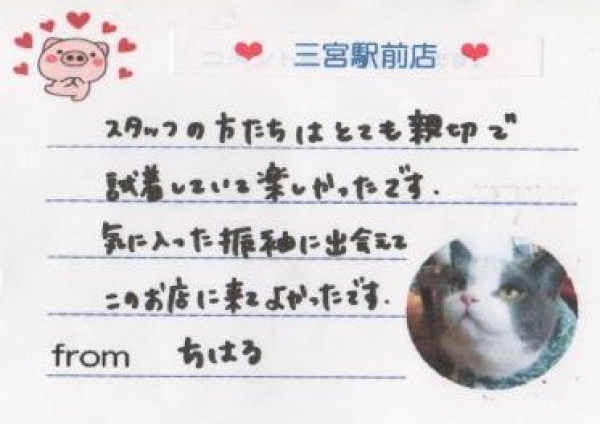 三宮駅前店
スタッフの方たちはとても親切で
試着していて楽しかったです.
気に入った振袖に出会えて
このお店に来てよかったです.
from ちはる